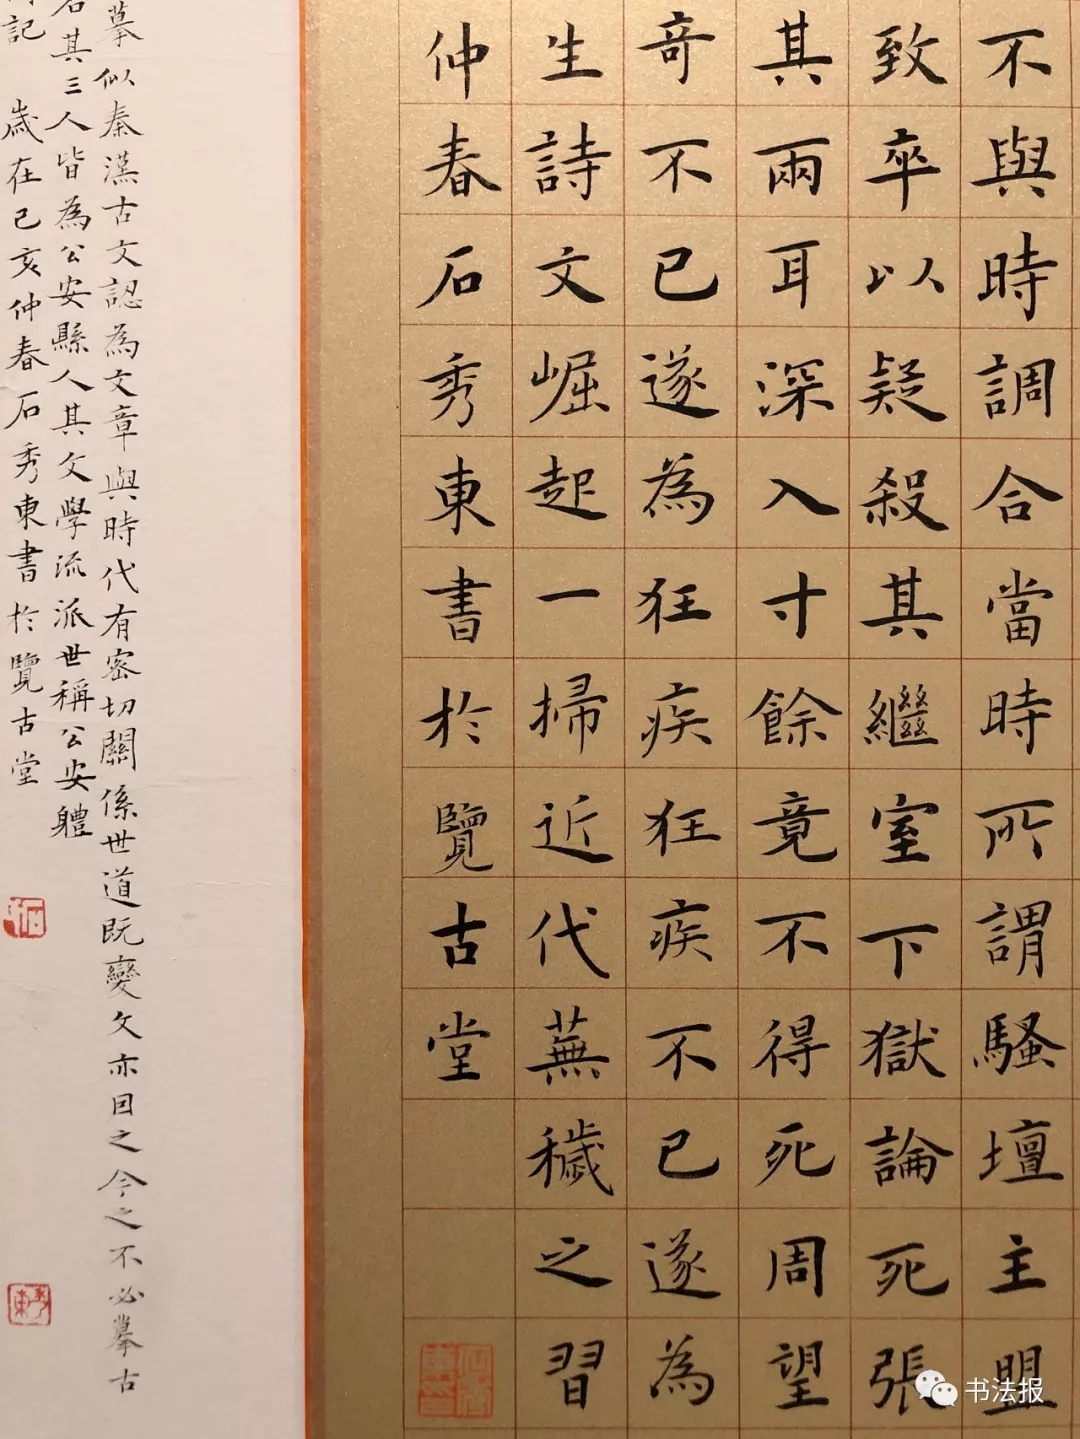 不與時調合當時所謂騷壇主盟
致卒以疑殺其繼室下獄論死張
其兩耳深入寸餘竟不得死周望
奇不已遂為狂疾狂疾不已遂為
生詩文崛起一掃近代蕪穢之習
仲春石秀東書於覽古堂
摹似秦漢古文認為文章與時代有密切關係世道既變文亦因之今之不必摹古
其三人皆為公安縣人其文學流派世稱公安體
記 歲在己亥仲春石秀東書於覽古堂
书法报